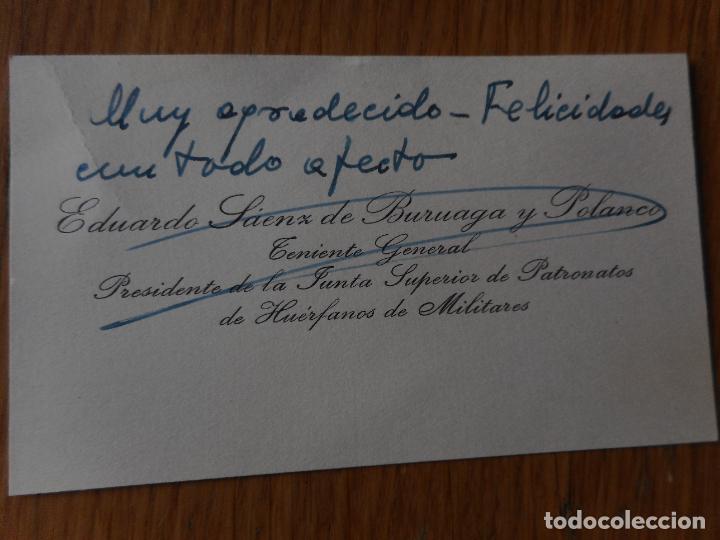 Muy agradecido - Felicidades
con todo afecto
Eduardo Sáenz de Buruaga y Polanco
Teniente General
Presidente de la Junta Superior de Patronatos
de Huérfanos de Militares
todocoleccion